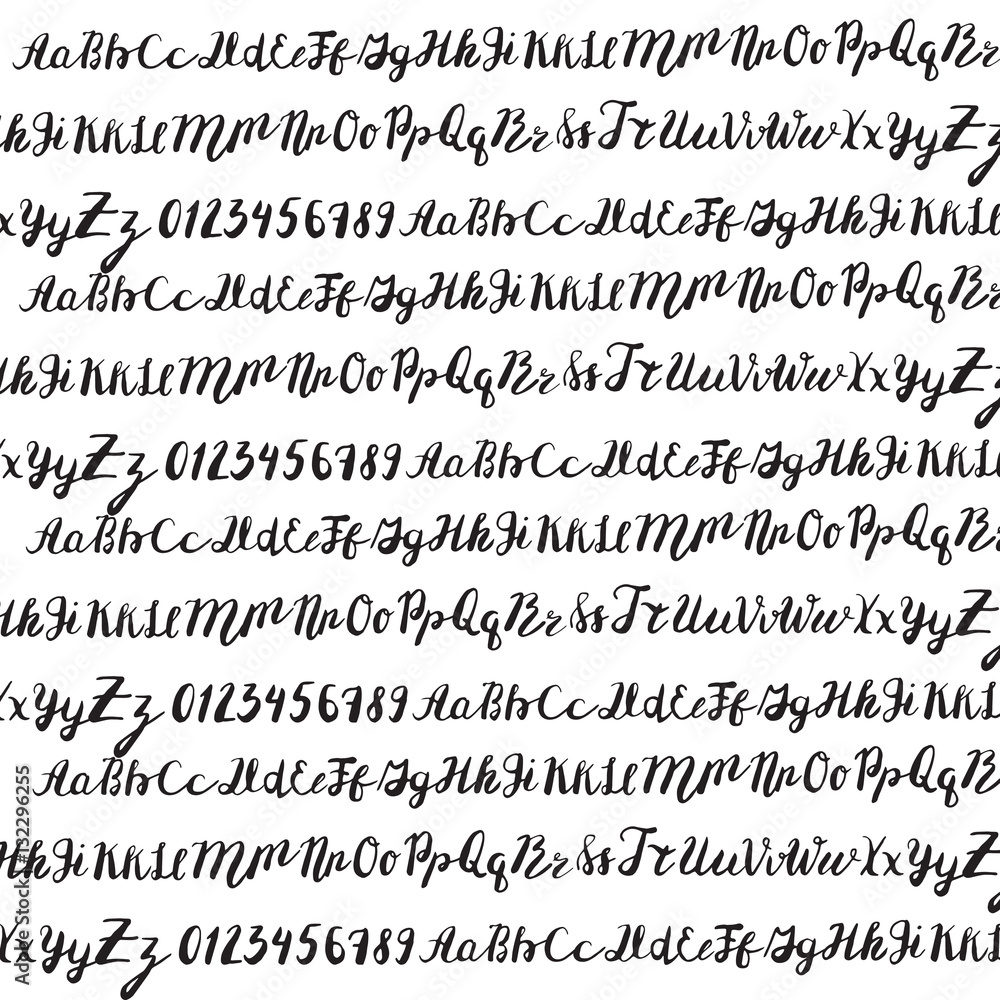 AaBbCcDdEeFfGgHhJiKkLlMmNnOoPpQqRr
hJiKkLlMmNnOoPpQqRrSsTtUuVvWwXxYyZz
xYyZz 0123456789 AaBbCcDdEeFfGgHhJiKkL
AaBbCcDdEeFfGgHhJiKkLlMmNnOoPpQqRr
hJiKkLlMmNnOoPpQqRrSsTtUuVvWwXxYyZz
XxYyZz 0123456789 AaBbCcDdEeFfGgHhJiKkL
AaBbCcDdEeFfGgHhJiKkLlMmNnOoPpQqRr
HhJiKkLlMmNnOoPpQqRrSsTtUuVvWwXxYyZ
XxYyZz 0123456789 AaBbCcDdEeFfGgHhJiKkL
AaBbCcDdEeFfGgHhJiKkLlMmNnOoPpQqR
HhJiKkLlMmNnOoPpQqRrSsTtUuVvWwXxYyZ
XYyZz 0123456789 AaBbCcDdEeFfGgHhJiKkL
Adobe Stock | #132296255